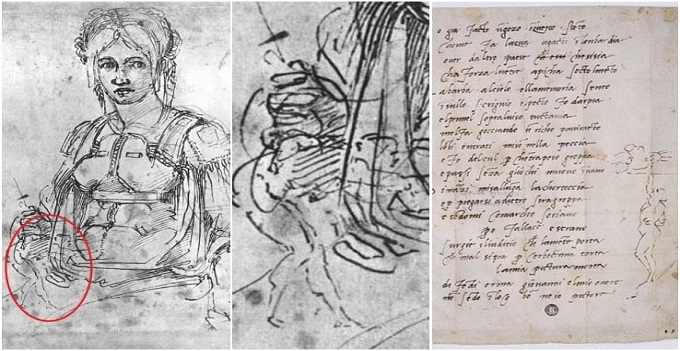 gia facto
come fa lacqua agacti i lombardia
over daltro paese che si sia
cha forza lventre apicha socto lmento
la barba alcielo ellamemoria sento
i sullo scrignio elpecto fo darpia
elpennel sopraluiso tuctavia
mel fa gocciando u richo pavimento
lobi entrati miso nella peccia
e fo delcul p chotrapeso groppa
e passi seza gliochi muovo i uano
misallunga lachorteccia
e p piegarsi adietro siragroppa
e tedomi comarcho soriano
po fallace e strano
surgie iliuditio che lamete porta
che mal si p cerboctana torta
lamia pictura morta
difedi orma giovanni elmio onore
ne io pictore